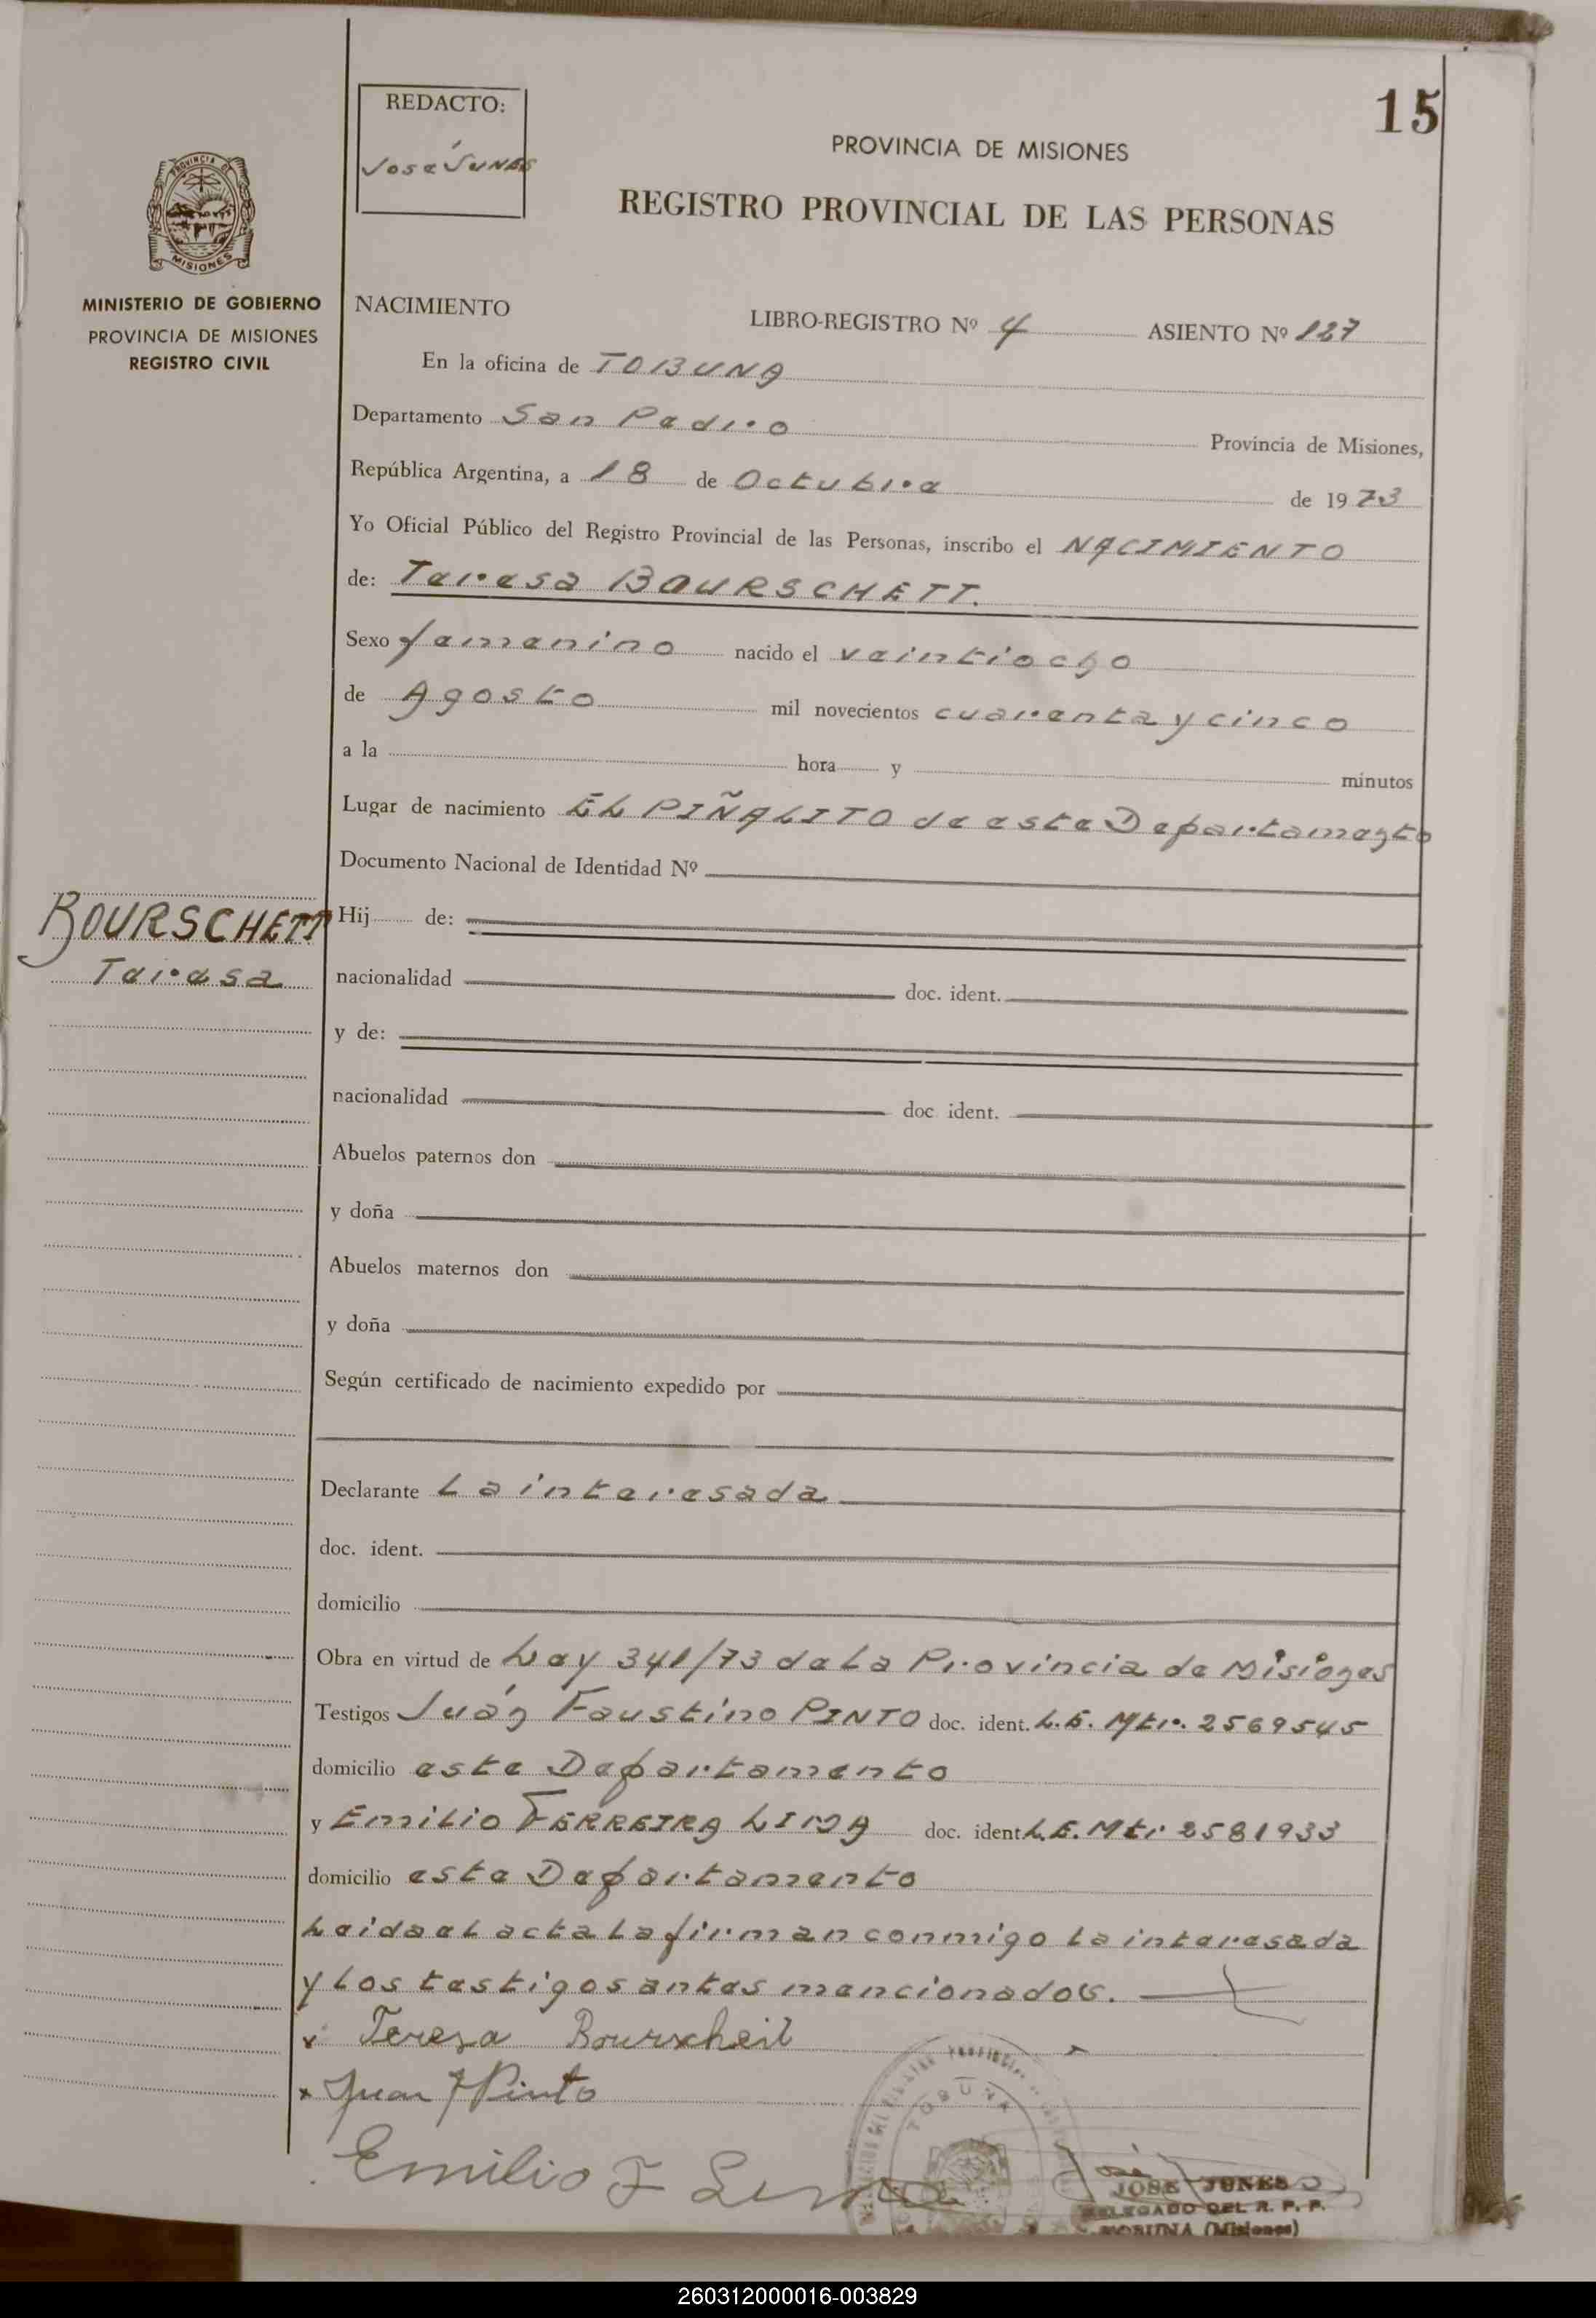 15
REDACTO:
José Junes
PROVINCIA DE MISIONES
REGISTRO PROVINCIAL DE LAS PERSONAS
PROVINCIA DE
MISIONES
MINISTERIO DE GOBIERNO
PROVINCIA DE MISIONES
REGISTRO CIVIL
NACIMIENTO
LIBRO-REGISTRO Nº 4 ASIENTO Nº 127
En la oficina de TOBUNA
Departamento San Pedro Provincia de Misiones,
República Argentina, a 18 de Octubre de 1973
Yo Oficial Público del Registro Provincial de las Personas, inscribo el NACIMIENTO
de: Teresa BOURSCHETT.
Sexo femenino nacido el veintiocho
de Agosto mil novecientos cuarenta y cinco
a la hora y minutos
Lugar de nacimiento EL PIÑALITO de este Departamento
Documento Nacional de Identidad Nº
BOURSCHETT
Teresa
Hij de:
nacionalidad doc. ident.
y de:
nacionalidad doc. ident.
Abuelos paternos don
y doña
Abuelos maternos don
y doña
Según certificado de nacimiento expedido por
Declarante La interesada
doc. ident.
domicilio
Obra en virtud de Ley 341/73 de La Provincia de Misiones
Testigos Juán Faustino PINTO doc. ident. L.E. Mtr. 2569545
domicilio este Departamento
y Emilio FERREIRA LIMA doc. ident. L.E. Mtr 2581933
domicilio este Departamento
Leida el acta la firman conmigo la interesada
y los testigos antes mencionados.
x Teresa Bourscheit
x Juan F Pinto
Emilio F Lima
TOBUNA
José Junes
JOSE JUNES
DELEGADO DEL R. P. P.
TOBUNA (Misiones)
260312000016-003829